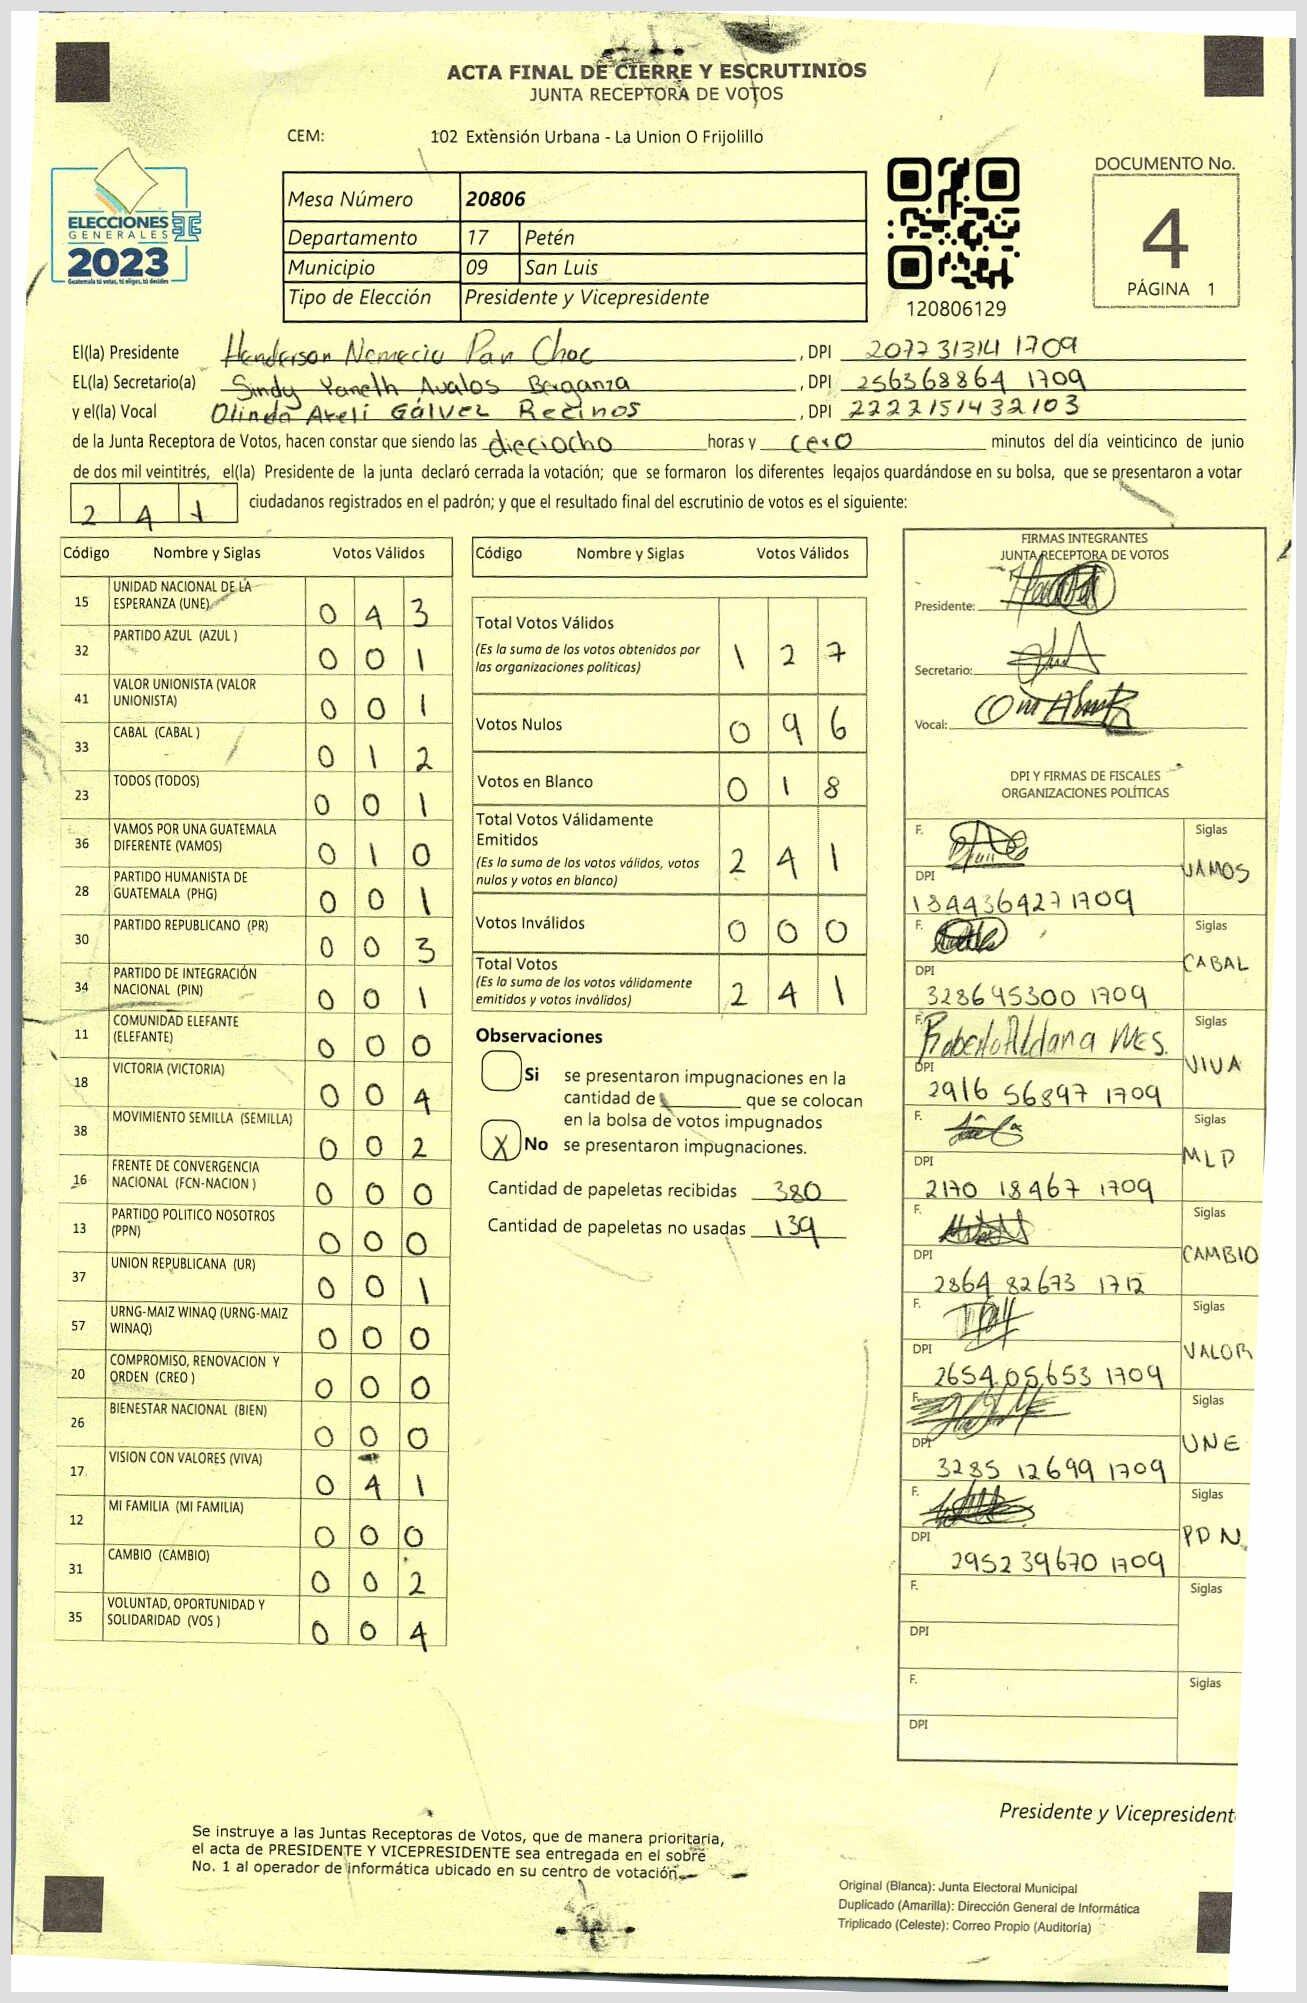 ACTA FINAL DE CIERRE Y ESCRUTINIOS
JUNTA RECEPTORA DE VOTOS
CEM: 102 Extensión Urbana - La Union O Frijolillo
ELECCIONES
GENERALES
2023
Guatemala tú votas, tú eliges, tú decides
Mesa Número 20806
Departamento 17 Petén
Municipio 09 San Luis
Tipo de Elección Presidente y Vicepresidente
120806129
DOCUMENTO No.
4
PÁGINA 1
El(la) Presidente Henderson Nemecio Pan Choc, DPI 207731314 1709
EL(la) Secretario(a) Sindy Yaneth Avalos Berganza, DPI 256368864 1709
y el(la) Vocal Olinda Areli Gálvez Recinos, DPI 2222151432103
de la Junta Receptora de Votos, hacen constar que siendo las dieciocho horas y cero minutos del día veinticinco de junio
de dos mil veintitrés, el(la) Presidente de la junta declaró cerrada la votación; que se formaron los diferentes legajos guardándose en su bolsa, que se presentaron a votar
241 ciudadanos registrados en el padrón; y que el resultado final del escrutinio de votos es el siguiente:
Código Nombre y Siglas Votos Válidos
15 UNIDAD NACIONAL DE LA ESPERANZA (UNE) 0 4 3
32 PARTIDO AZUL (AZUL ) 0 0 1
41 VALOR UNIONISTA (VALOR UNIONISTA) 0 0 1
33 CABAL (CABAL ) 0 1 2
23 TODOS (TODOS) 0 0 1
36 VAMOS POR UNA GUATEMALA DIFERENTE (VAMOS) 0 1 0
28 PARTIDO HUMANISTA DE GUATEMALA (PHG) 0 0 1
30 PARTIDO REPUBLICANO (PR) 0 0 3
34 PARTIDO DE INTEGRACIÓN NACIONAL (PIN) 0 0 1
11 COMUNIDAD ELEFANTE (ELEFANTE) 0 0 0
18 VICTORIA (VICTORIA) 0 0 4
38 MOVIMIENTO SEMILLA (SEMILLA) 0 0 2
16 FRENTE DE CONVERGENCIA NACIONAL (FCN-NACION ) 0 0 0
13 PARTIDO POLITICO NOSOTROS (PPN) 0 0 0
37 UNION REPUBLICANA (UR) 0 0 1
57 URNG-MAIZ WINAQ (URNG-MAIZ WINAQ) 0 0 0
20 COMPROMISO, RENOVACION Y ORDEN (CREO ) 0 0 0
26 BIENESTAR NACIONAL (BIEN) 0 0 0
17 VISION CON VALORES (VIVA) 0 4 1
12 MI FAMILIA (MI FAMILIA) 0 0 0
31 CAMBIO (CAMBIO) 0 0 2
35 VOLUNTAD, OPORTUNIDAD Y SOLIDARIDAD (VOS ) 0 0 4
Código Nombre y Siglas Votos Válidos
Total Votos Válidos 1 2 7
(Es la suma de los votos obtenidos por
las organizaciones políticas)
Votos Nulos 0 9 6
Votos en Blanco 0 1 8
Total Votos Válidamente
Emitidos 2 4 1
(Es la suma de los votos válidos, votos
nulos y votos en blanco)
Votos Inválidos 0 0 0
Total Votos 2 4 1
(Es la suma de los votos válidamente
emitidos y votos inválidos)
Observaciones
Si se presentaron impugnaciones en la
cantidad de ______ que se colocan
en la bolsa de votos impugnados
X No se presentaron impugnaciones.
Cantidad de papeletas recibidas 380
Cantidad de papeletas no usadas 139
FIRMAS INTEGRANTES
JUNTA RECEPTORA DE VOTOS
Presidente:
Secretario:
Vocal:
DPI Y FIRMAS DE FISCALES
ORGANIZACIONES POLÍTICAS
F. Siglas VAMOS
DPI 184436427 1709
F. Siglas CABAL
DPI 328645300 1709
F. Roberto Aldana Mcs. Siglas VIVA
DPI 2916 56897 1709
F. Siglas MLP
DPI 2170 18467 1709
F. Siglas CAMBIO
DPI 2864 82673 1712
F. Siglas VALOR
DPI 2654 05653 1709
F. Siglas UNE
DPI 3285 12699 1709
F. Siglas PDN
DPI 2952 39670 1709
F. Siglas
DPI
F. Siglas
DPI
Presidente y Vicepresident
Se instruye a las Juntas Receptoras de Votos, que de manera prioritaria,
el acta de PRESIDENTE Y VICEPRESIDENTE sea entregada en el sobre
No. 1 al operador de informática ubicado en su centro de votación.
Original (Blanca): Junta Electoral Municipal
Duplicado (Amarilla): Dirección General de Informática
Triplicado (Celeste): Correo Propio (Auditoría)